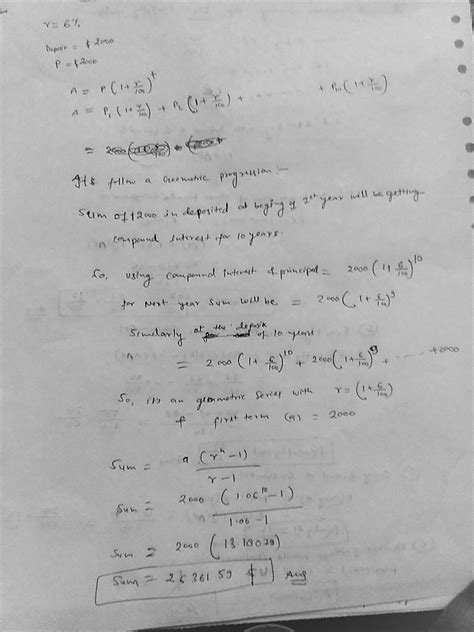 r = 6%
Deposit = $2000
P = $2000
A = P(1+r/100)^t
A = P₁(1+r/100) + P₂(1+r/100) + ...... + P₁₀(1+r/100)
=
It's follow a Geometric progression :-
Sum of $2000 is deposited at beging of 1st year will be getting
compound interest for 10 years.
So, using compound interest & principal = 2000(1+6/100)^10
for Next year Sum will be = 2000(1+6/100)^9
Similarly at the deposit of 10 years
= 2000(1+6/100)^10 + 2000(1+6/100)^9 + ...... +2000
So, its an geometric series with r = (1+6/100)
& first term (a) = 2000
Sum = a(r^n-1)/r-1
Sum = 2000(1.06^10-1)/1.06-1
Sum = 2000(13.18079)
Sum = 26361.59 Ans